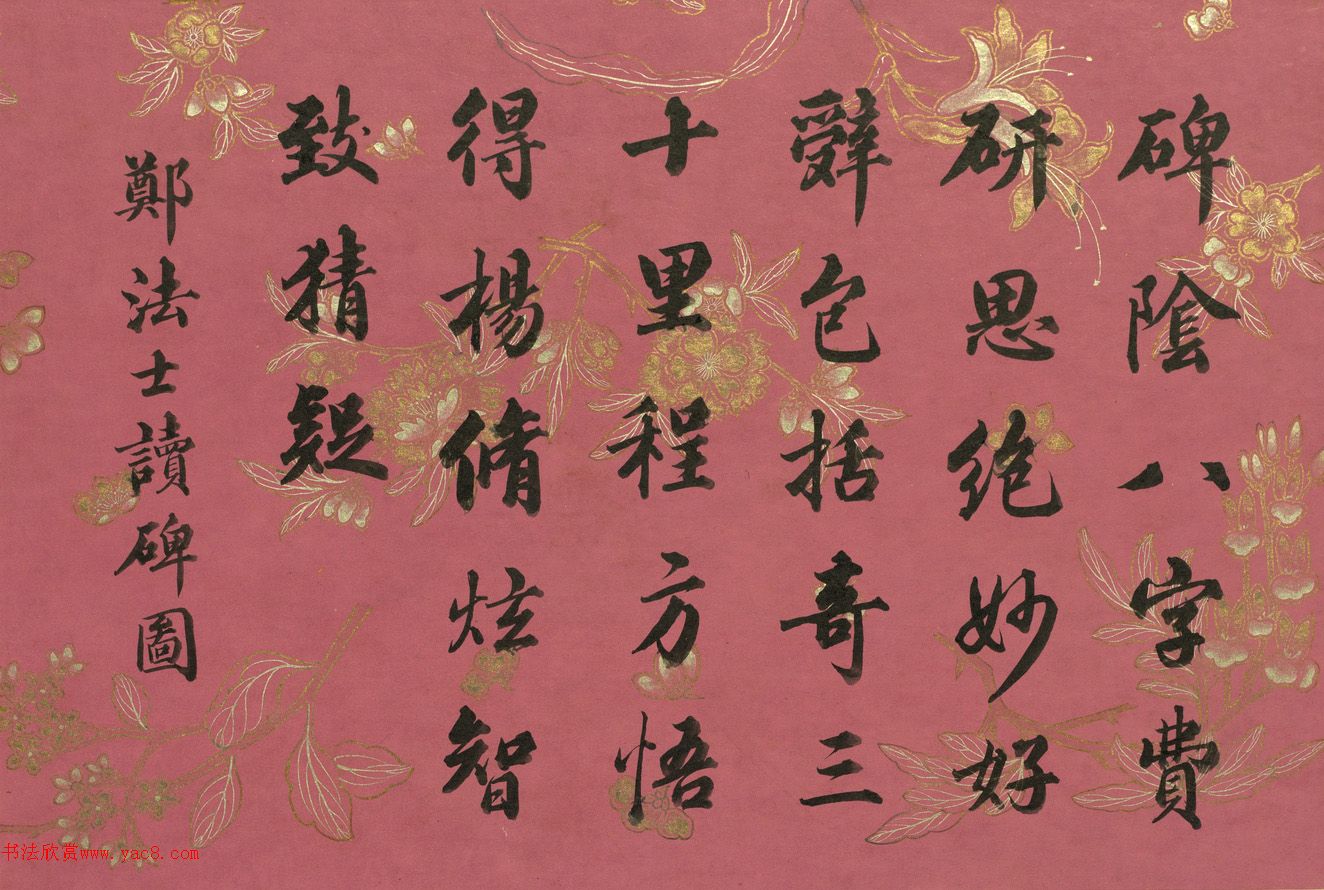 碑陰八字費
研思絶妙好
辤包括奇三
十里程方悟
得楊脩炫智
致猜疑
鄭法士讀碑圖
书法欣赏www.yac8.com